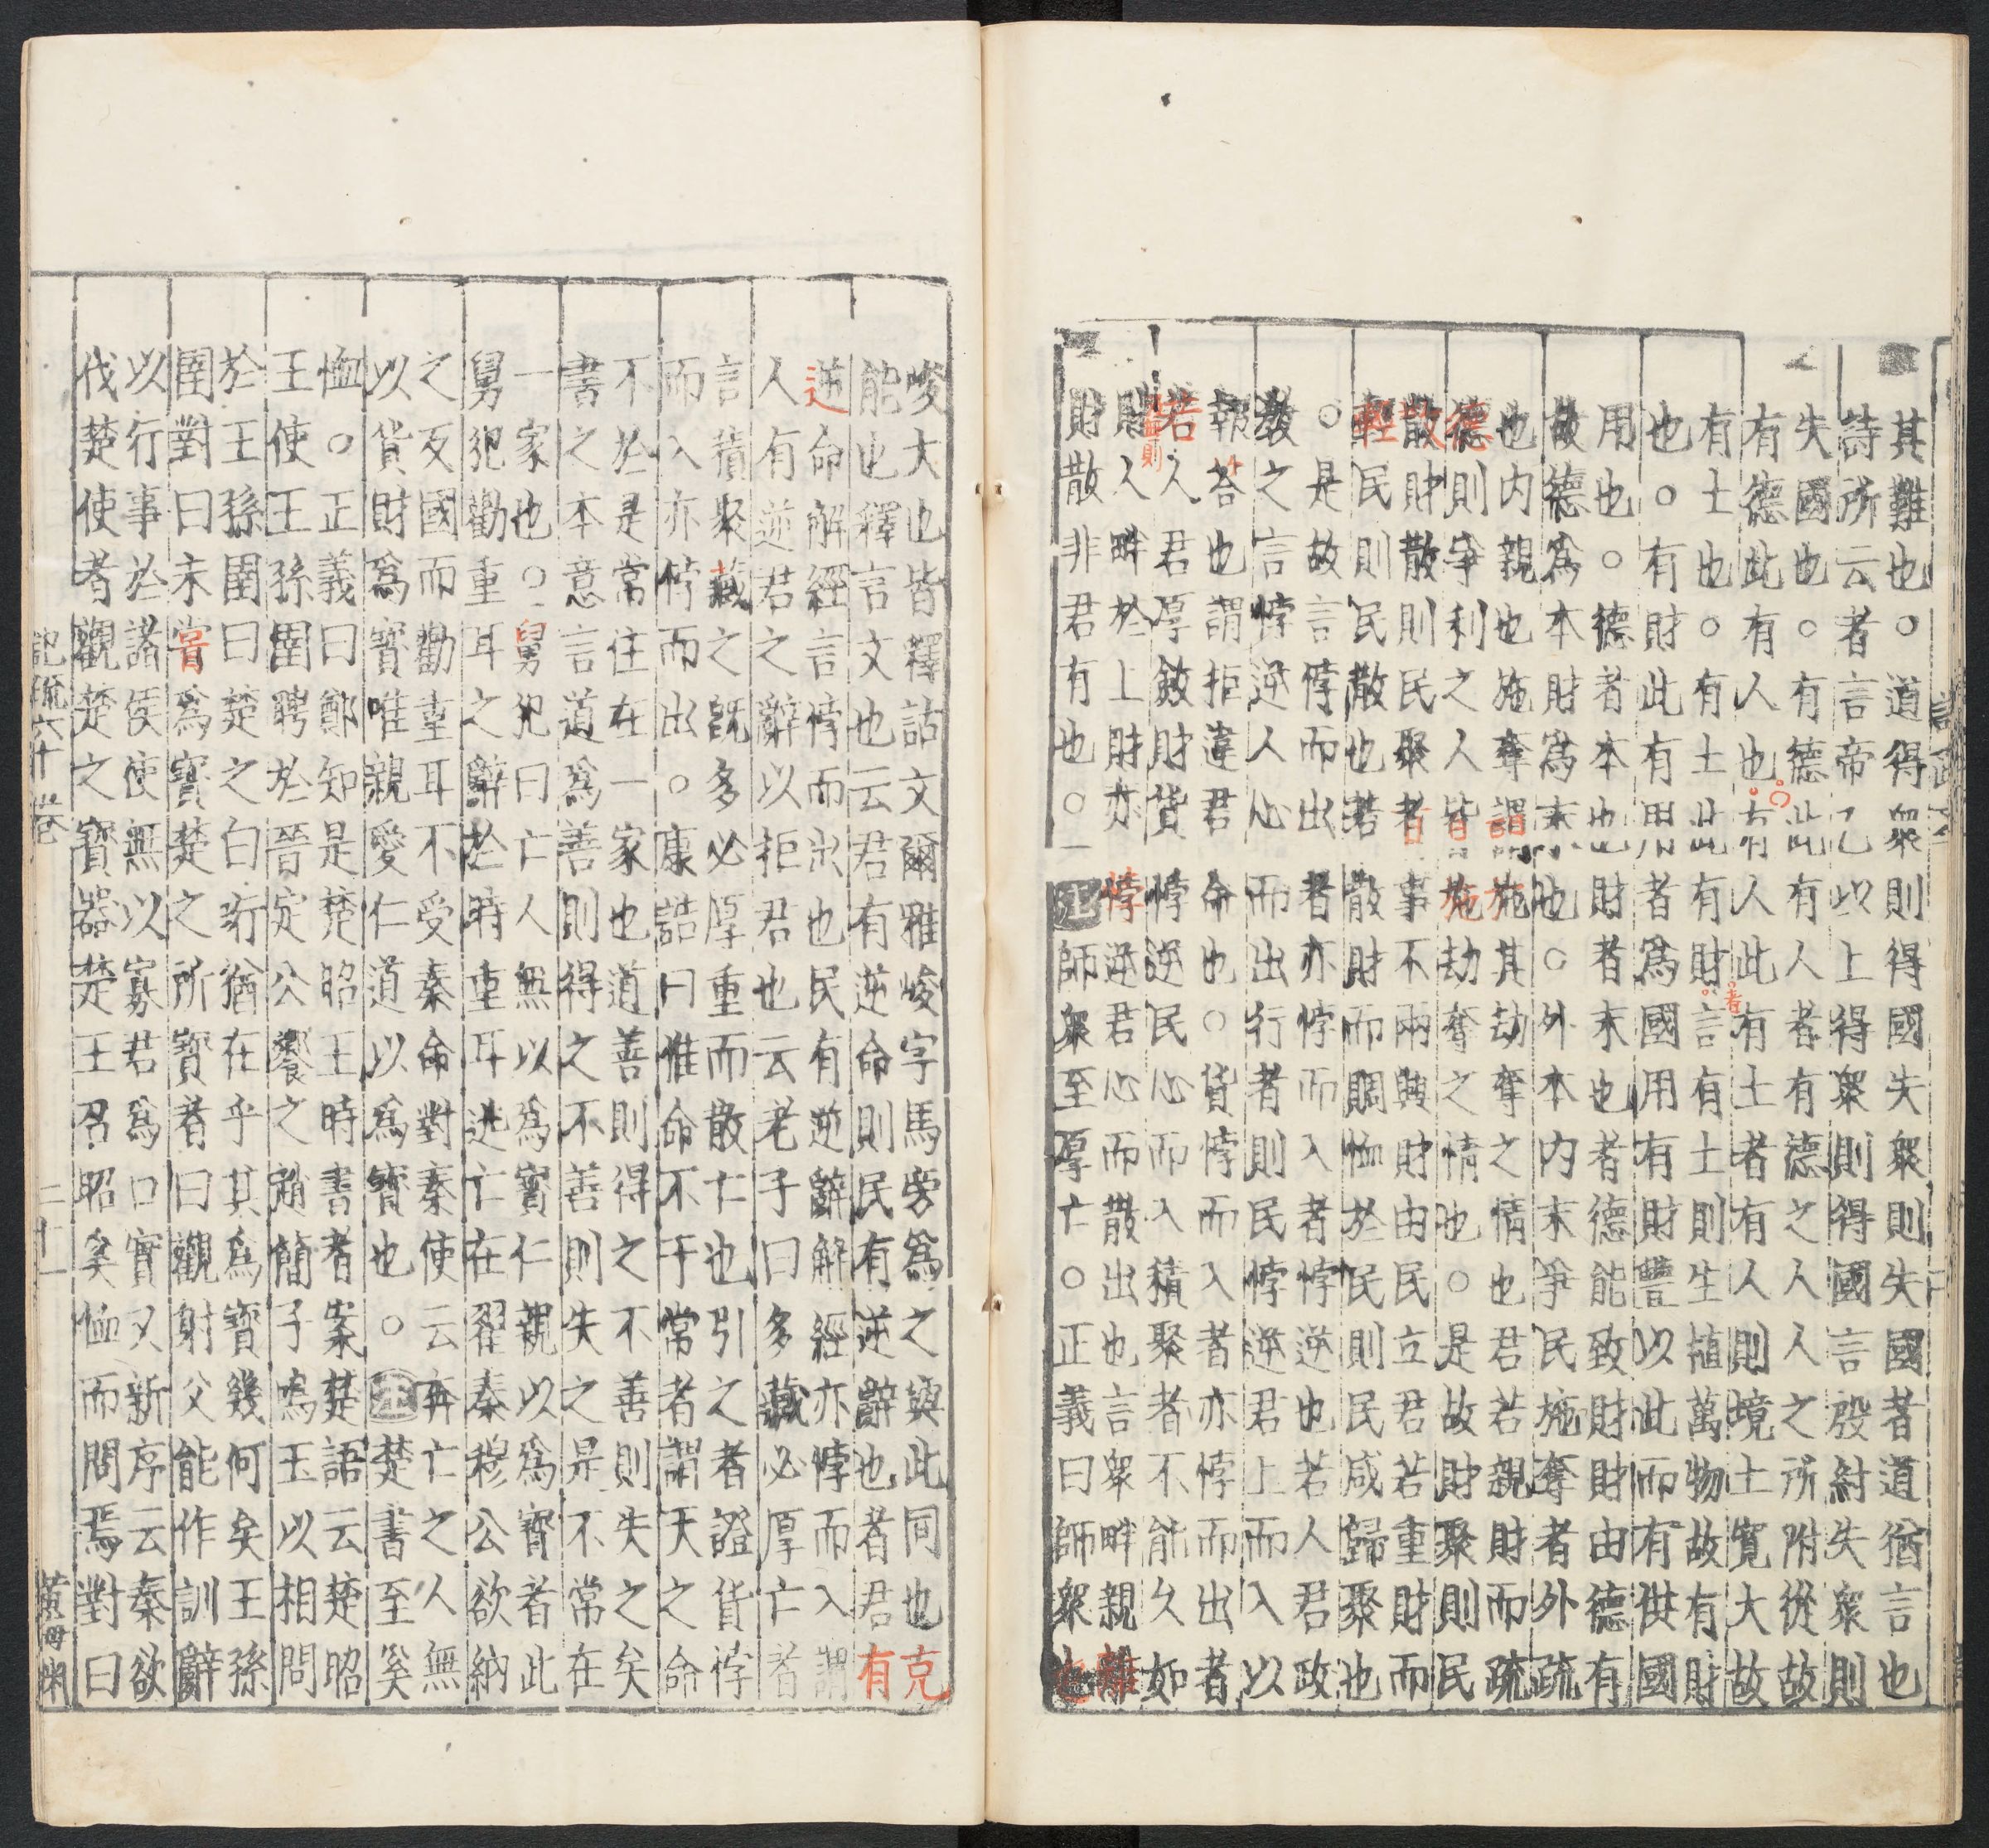 其難也○道得衆則得國失衆則失國者道猶言也
詩所云者言帝乙以上得衆則得國言殷紂失衆則
失國也○有德此有人者有德之人人之所附從故
有德此有人也有人此有土者有人則境土寬大故
有土也○有土此有財言有土則生植萬物故有財
也○有財此有用者爲國用有財豐以此而有供國
用也○德者本也財者末也者德能致財財由德有
故德爲本財爲末也○外本内末爭民施奪者外疏
也内親也施奪謂施其劫奪之情也君若親財而疏
德則爭利之人皆施劫奪之情也○是故財聚則民
散財散則民聚者事不兩興財由民立君若重財而
輕民則民散也若散財而賙恤於民則民咸歸聚也
○是故言悖而出者亦悖而入者悖逆也若人君政
敎之言悖逆人心而出行者則民悖逆君上而入以
報荅也謂拒違君命也○貨悖而入者亦悖而出者
若人君厚斂財貨悖逆民心而入積聚者不能久如
財人畔於上財亦悖逆君心而散出也言衆畔親離
財散非君有也○師衆至厚亡○正義曰師衆也
峻大也皆釋詁文爾雅峻字馬旁爲之與此同也克
能也釋言文也云君有逆命則民有逆辭也者君有
逆命解經言悖而出也民有逆辭解經亦悖而入謂
人有逆君之辭以拒君也云老子曰多藏必厚亡者
言積聚藏之旣多必厚重而散亡也引之者證貨悖
而入亦悖而出○康誥曰惟命不于常者謂天之命
不於是常住在一家也道善則得之不善則失之矣
書之本意言道爲善則得之不善則失之是不常在
一家也○舅犯曰亡人無以爲寶仁親以爲寶者此
舅犯勸重耳之辭於時重耳逃亡在翟秦穆公欲納
之反國而勸重耳不受秦命對秦使云奔亡之人無
以貨財爲寶唯親愛仁道以爲寶也○注楚書至奚
恤○正義曰鄭知是楚昭王時書者案楚語云楚昭
王使王孫圉聘於晉定公饗之趙簡子鳴玉以相問
於王孫圉曰楚之白珩猶在乎其爲寶幾何矣王孫
圉對曰未嘗爲寶楚之所寶者曰觀射父能作訓辭
以行事於諸侯使無以寡君爲口實又新序云秦欲
伐楚使者觀楚之寶器楚王召昭奚恤而問焉對曰
記疏六十卷 二十一 黃毋